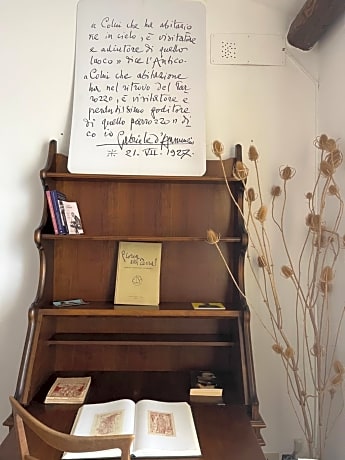 « Colui che ha abitazio
ne in cielo, è visitatore
e adiutore di quello
luoco » dice l'Antico.
« Colui che abitazione
ha nel ritrovo del Par
rozzo, è visitatore e
presentissimo goditore
di quello parrozzo » di
co io Gabriele d'Annunzio
* 21. VII. 1927.